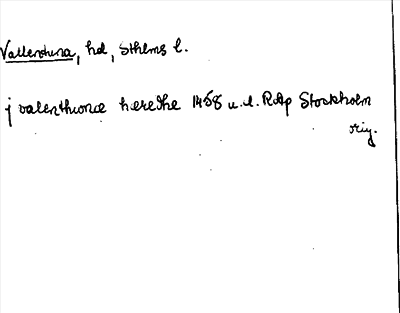 Vallentuna, hd, Sthlms l.
j valenthwnæ herethe 1458 u.d. RAp Stockholm
orig.